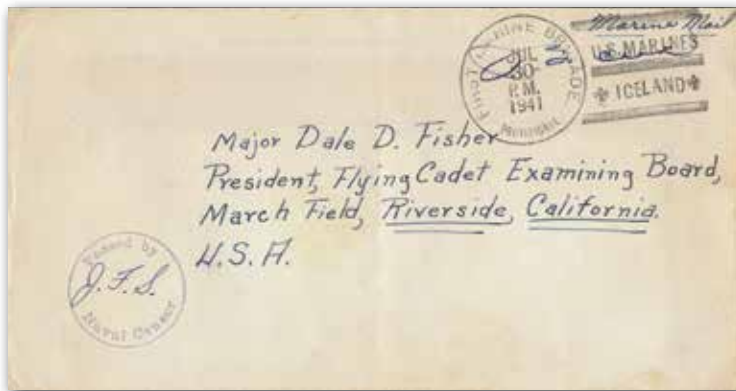 Marine Mail
FIRST MARINE BRIGADE
JUL
30
P.M.
1941
PROVISIONAL
U.S. MARINES
ICELAND
Major Dale D. Fisher
President, Flying Cadet Examining Board,
March Field, Riverside, California.
U.S.A.
Passed by
J.F.S.
Naval Censor